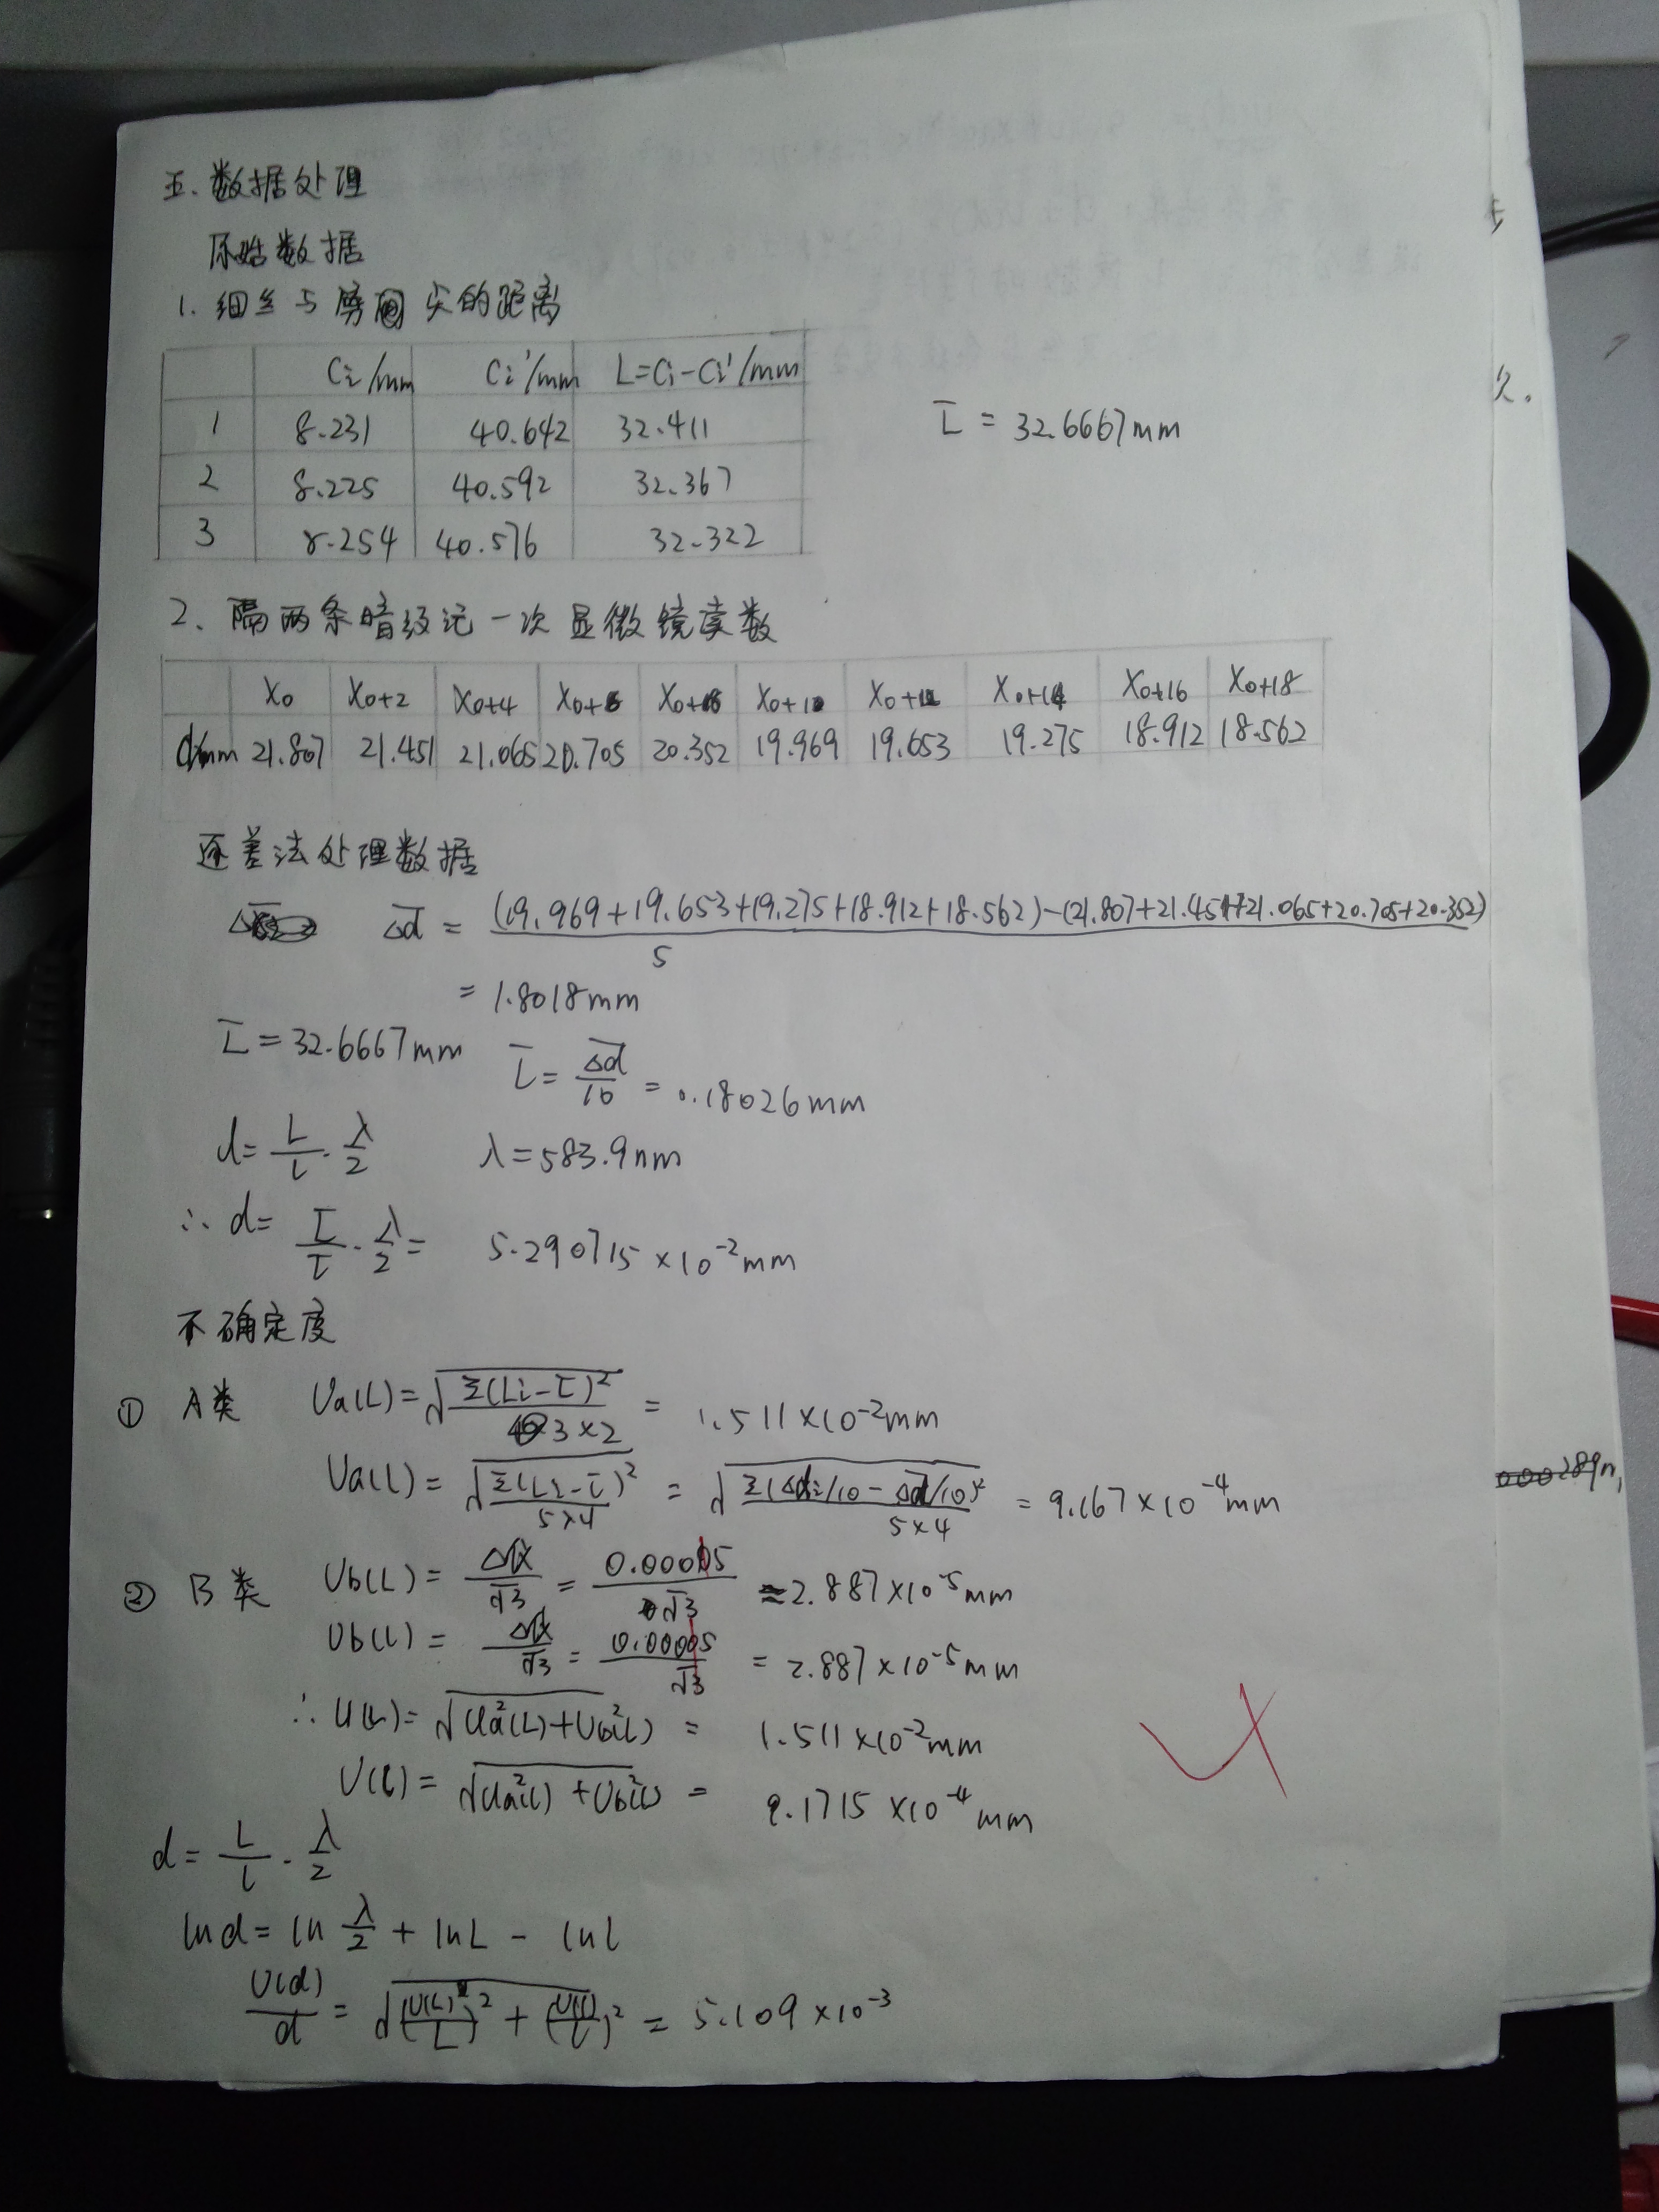 五、数据处理
原始数据
1. 细丝与劈尖的距离
Ci/mm Ci'/mm L=Ci-Ci'/mm
1 8.231 40.642 32.411
2 8.225 40.592 32.367
3 8.254 40.576 32.322
L̄ = 32.6667mm
2、隔两条暗纹记一次显微镜读数
X0 X0+2 X0+4 X0+6 X0+8 X0+10 X0+12 X0+14 X0+16 X0+18
d/mm 21.807 21.451 21.065 20.705 20.352 19.969 19.653 19.275 18.912 18.562
逐差法处理数据
Δd̄ = (19.969+19.653+19.275+18.912+18.562)-(21.807+21.451+21.065+20.705+20.352) / 5
= 1.8018mm
L̄ = 32.6667mm l̄ = Δd̄/10 = 0.18026mm
d = L/l · λ/2 λ = 583.9nm
∴ d = L̄/l̄ · λ/2 = 5.290715×10⁻²mm
不确定度
① A类 Ua(L) = √(Σ(Li-L̄)²/3×2) = 1.511×10⁻²mm
Ua(l) = √(Σ(li-l̄)²/5×4) = √(Σ(Δdi/10-Δd̄/10)²/5×4) = 9.167×10⁻⁴mm
② B类 Ub(L) = Δ仪/√3 = 0.00005/√3 ≈ 2.887×10⁻⁵mm
Ub(l) = Δ仪/√3 = 0.00005/√3 = 2.887×10⁻⁵mm
∴ U(L) = √(Ua²(L)+Ub²(L)) = 1.511×10⁻²mm
U(l) = √(Ua²(l)+Ub²(l)) = 9.1715×10⁻⁴mm
d = L/l · λ/2
ln d = ln λ/2 + lnL - lnl
U(d)/d = √((U(L)/L)² + (U(l)/l)²) = 5.109×10⁻³